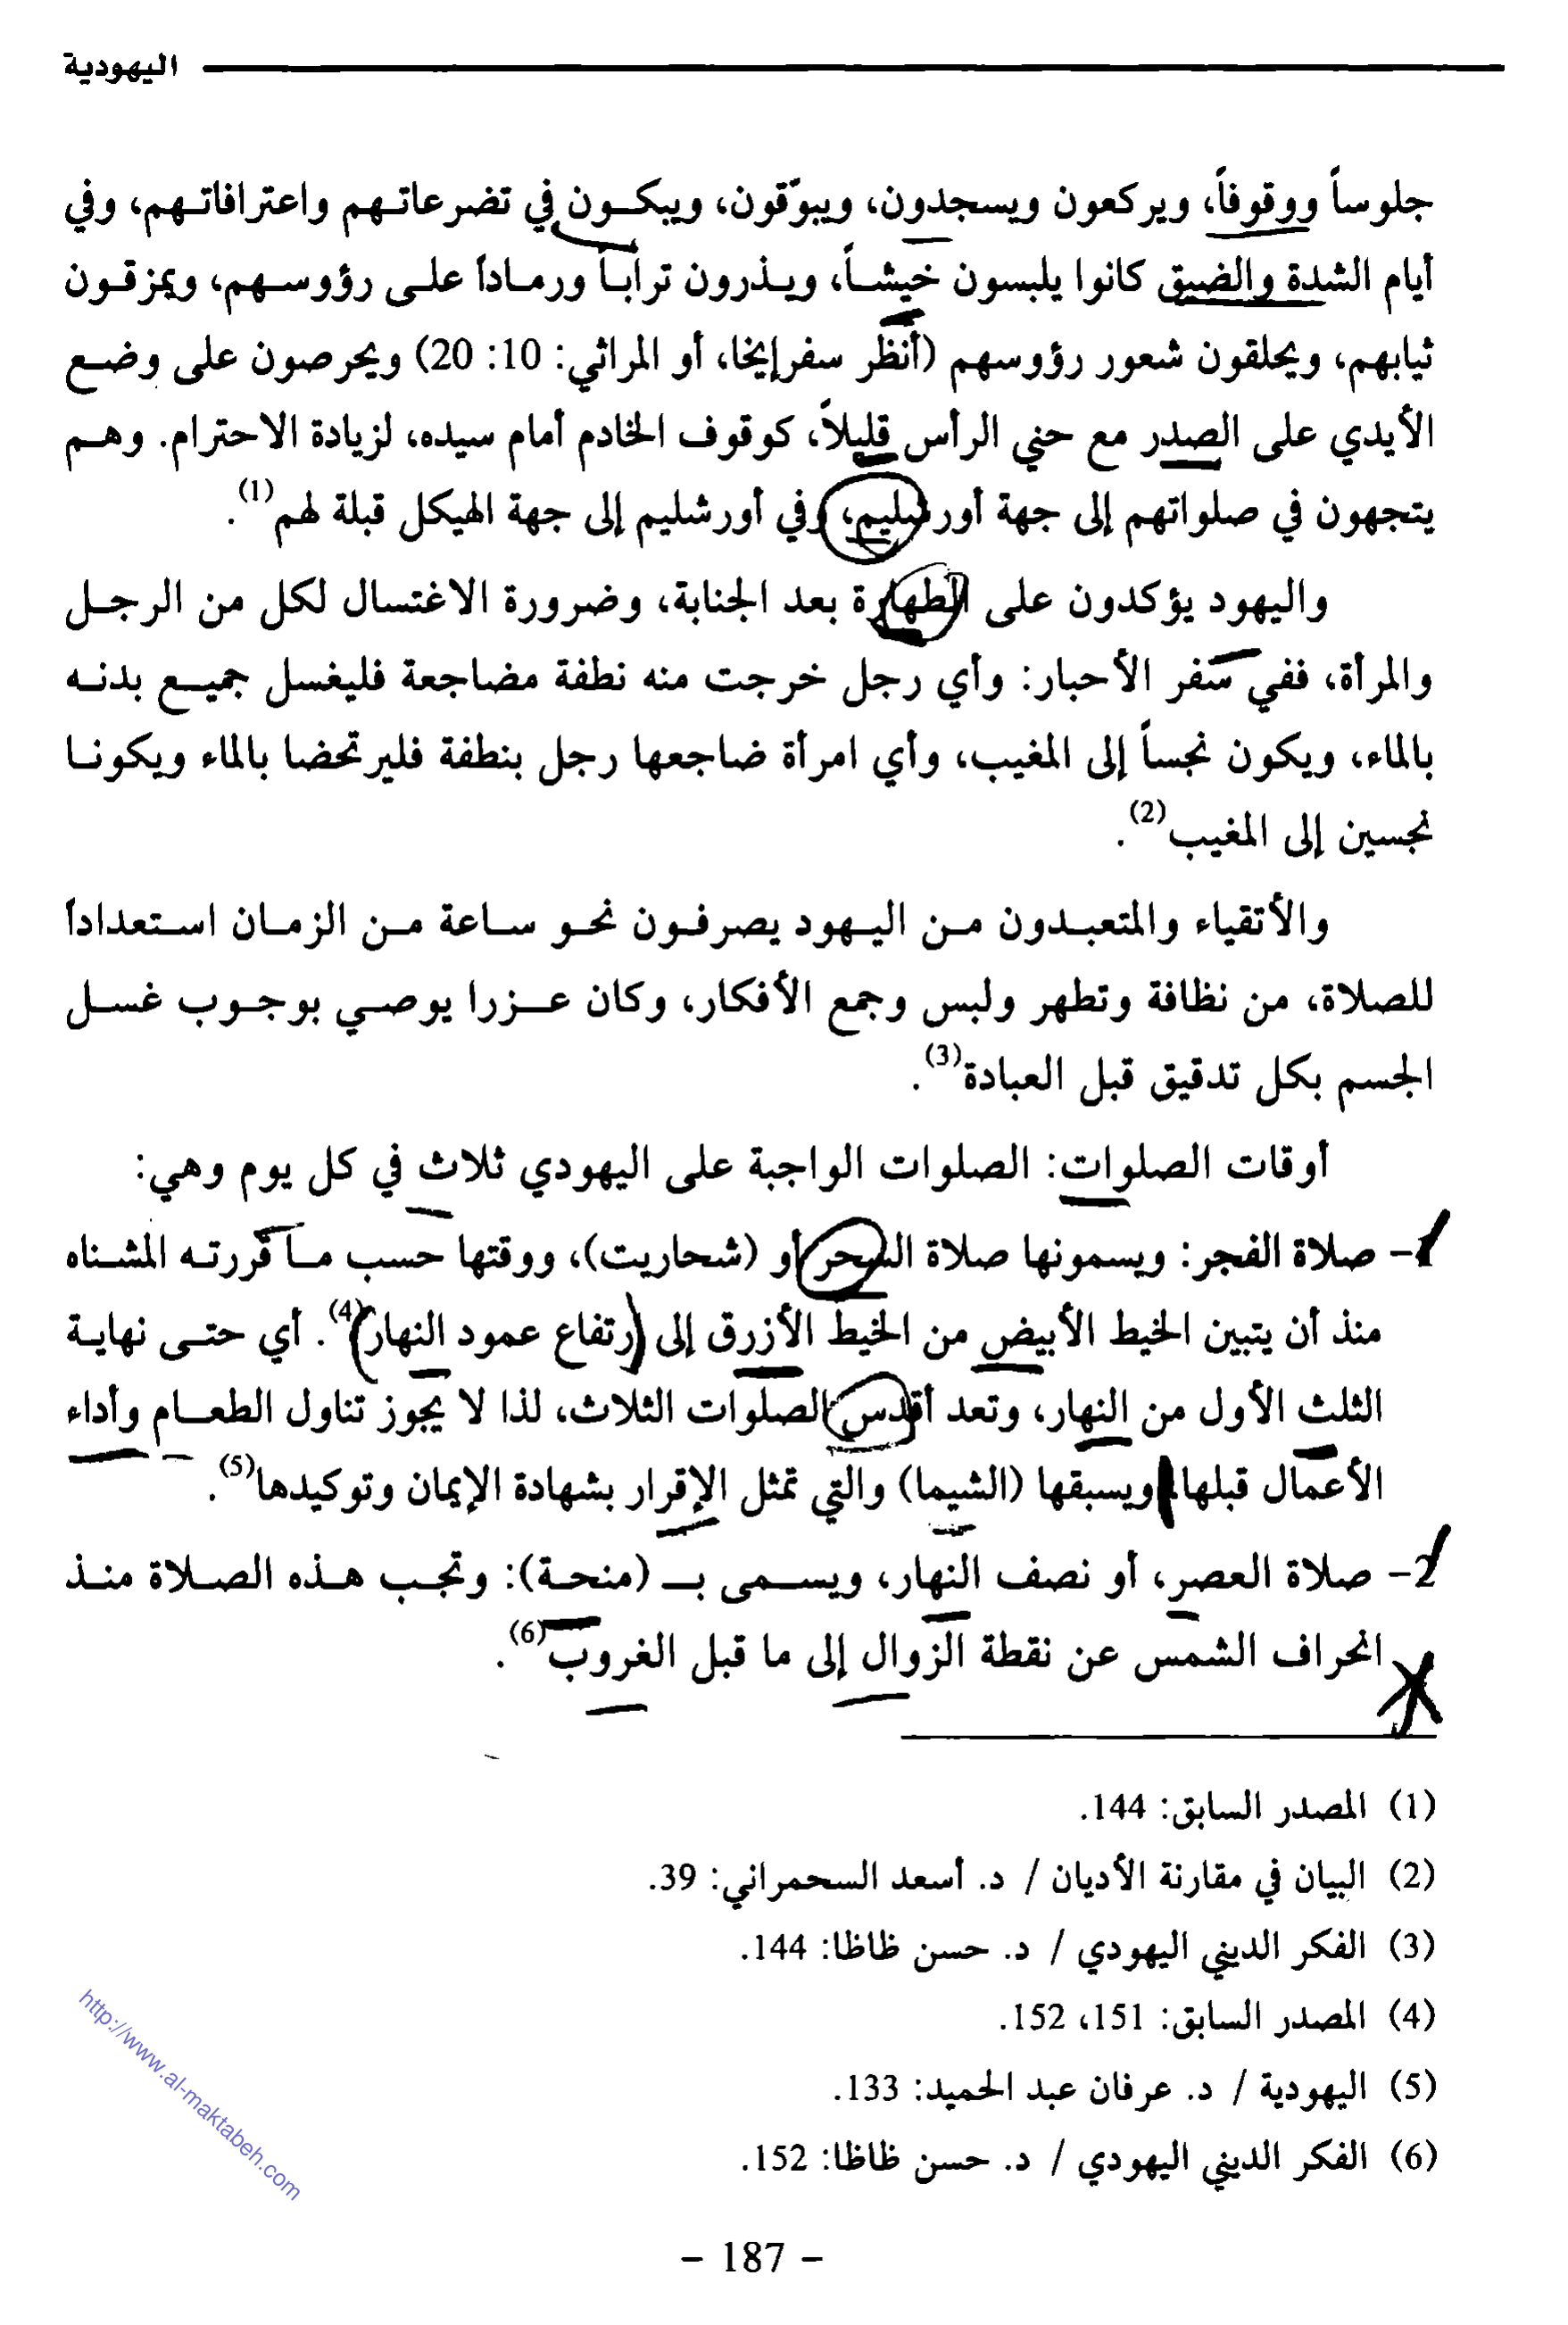 اليهودية
جلوساً ووقوفاً، ويركعون ويسجدون، ويبوّقون، ويبكون في تضرعاتهم واعترافاتهم، وفي
أيام الشدة والضيق كانوا يلبسون خيشاً، ويذرون تراباً ورماداً على رؤوسهم، ويمزقون
ثيابهم، ويحلقون شعور رؤوسهم (أنظر سفرإيخا، أو المراثي: 10: 20) ويحرصون على وضع
الأيدي على الصدر مع حني الرأس قليلاً، كوقوف الخادم أمام سيده، لزيادة الاحترام. وهم
يتجهون في صلواتهم إلى جهة أورشليم، وفي أورشليم إلى جهة الهيكل قبلة لهم(1).
واليهود يؤكدون على الطهارة بعد الجنابة، وضرورة الاغتسال لكل من الرجل
والمرأة، ففي سفر الأحبار: وأي رجل خرجت منه نطفة مضاجعة فليغسل جميع بدنه
بالماء، ويكون نجساً إلى المغيب، وأي امرأة ضاجعها رجل بنطفة فليرتحضا بالماء ويكونا
نجسين إلى المغيب(2).
والأتقياء والمتعبدون من اليهود يصرفون نحو ساعة من الزمان استعداداً
للصلاة، من نظافة وتطهر ولبس وجمع الأفكار، وكان عزرا يوصي بوجوب غسل
الجسم بكل تدقيق قبل العبادة(3).
أوقات الصلوات: الصلوات الواجبة على اليهودي ثلاث في كل يوم وهي:
1- صلاة الفجر: ويسمونها صلاة السحر أو (شحاريت)، ووقتها حسب ما قررته المشناه
منذ أن يتبين الخيط الأبيض من الخيط الأزرق إلى (رتفاع عمود النهار)(4). أي حتى نهاية
الثلث الأول من النهار، وتعد أقدس الصلوات الثلاث، لذا لا يجوز تناول الطعام وأداء
الأعمال قبلها، ويسبقها (الشيما) والتي تمثل الإقرار بشهادة الإيمان وتوكيدها(5).
2- صلاة العصر، أو نصف النهار، ويسمى بـ (منحة): وتجب هذه الصلاة منذ
انحراف الشمس عن نقطة الزوال إلى ما قبل الغروب(6).
(1) المصدر السابق: 144.
(2) البيان في مقارنة الأديان / د. أسعد السحمراني: 39.
(3) الفكر الديني اليهودي / د. حسن ظاظا: 144.
(4) المصدر السابق: 151، 152.
(5) اليهودية / د. عرفان عبد الحميد: 133.
(6) الفكر الديني اليهودي / د. حسن ظاظا: 152.
http://www.al-maktabeh.com
- 187 -